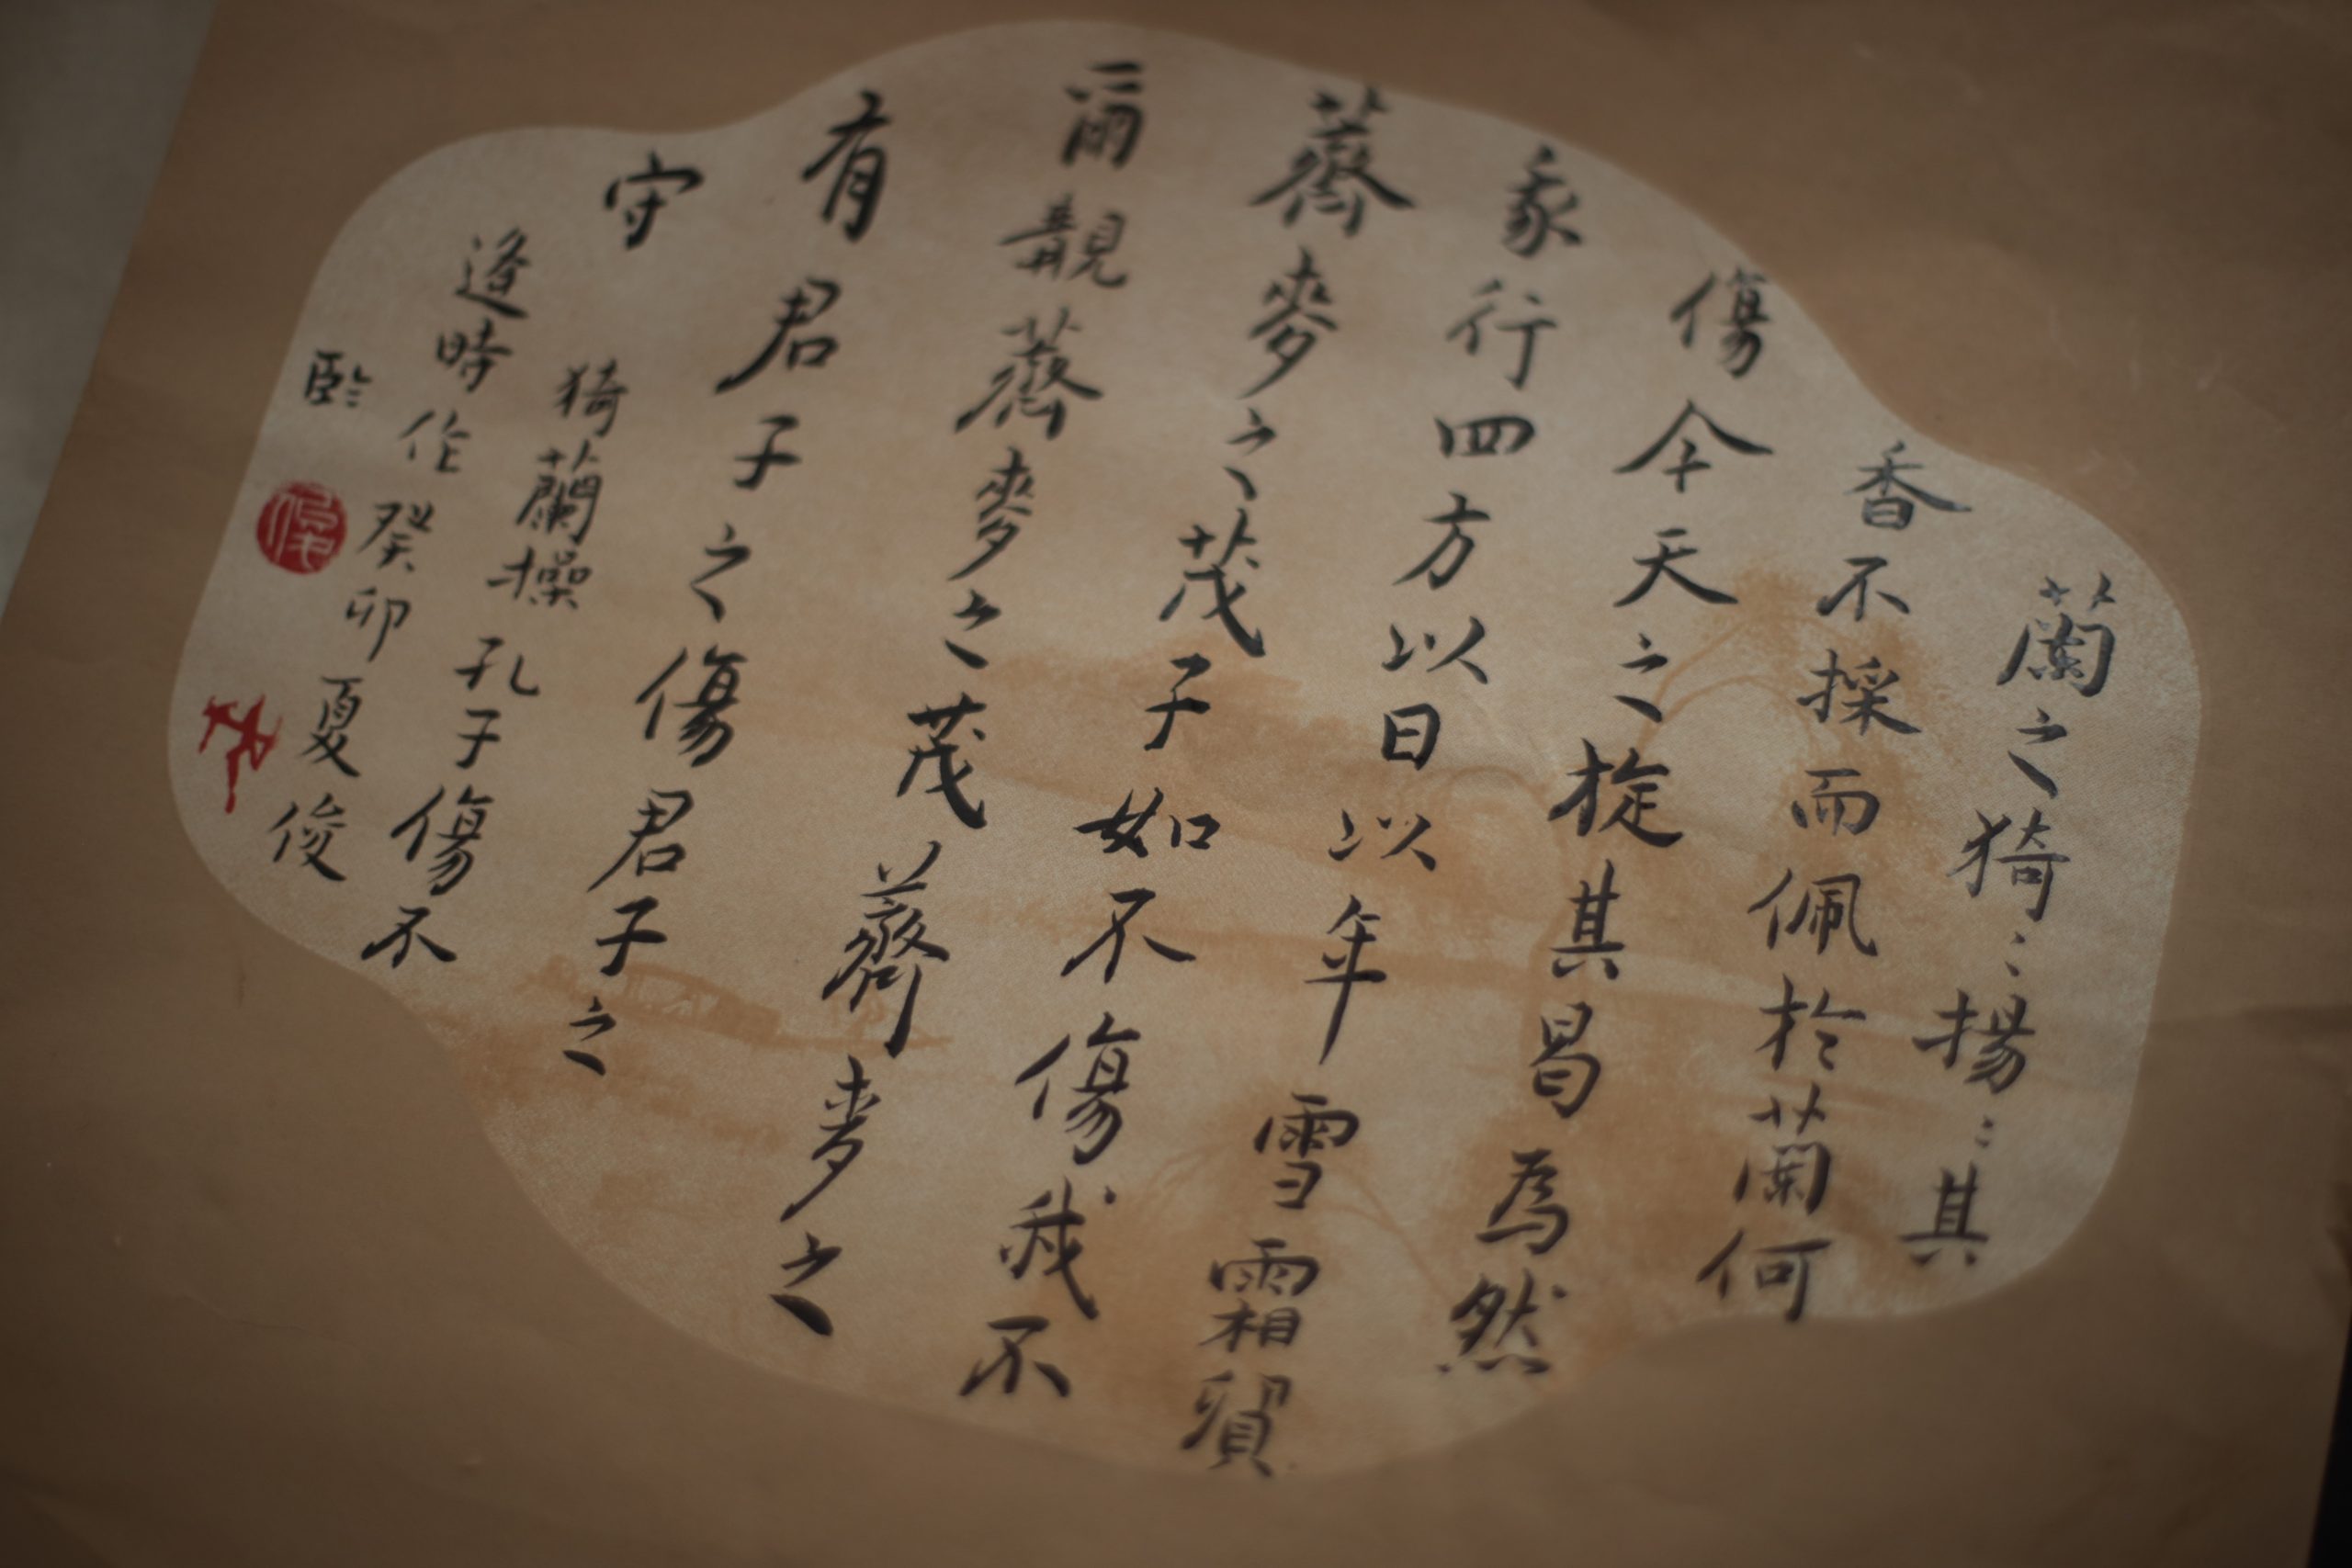 蘭之猗〻揚〻其
香不採而佩於蘭何
傷今天之旋其曷為然
我行四方以日以年雪霜貿
薺麥之茂子如不傷我不
爾覯薺麥之茂薺麥之
有君子之傷君子之
守
猗蘭操孔子傷不
逢時作癸卯夏俊
臨